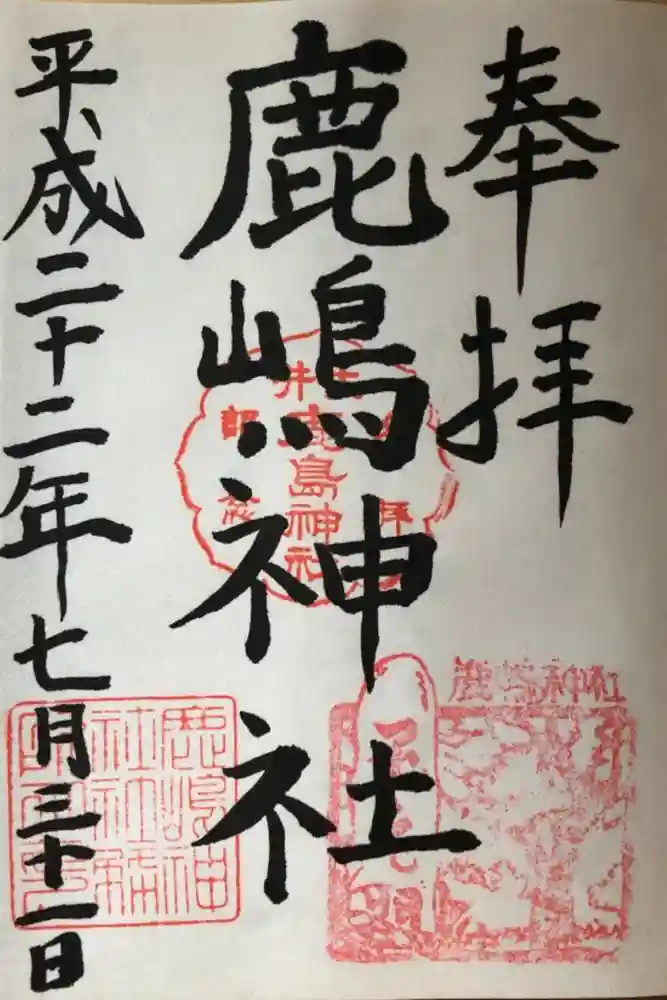 奉拝
鹿嶋神社
平成二十二年七月三十一日
鹿島神社
鹿嶋神社
鹿嶋神